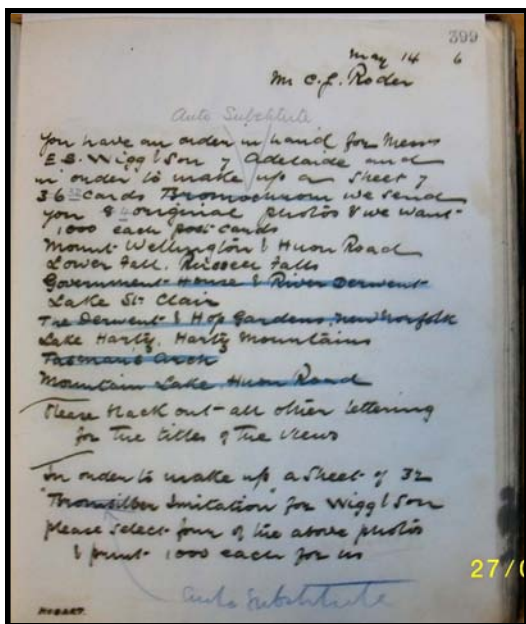 399
May 14 6
Mr C. G. Roder
Auto Substitute
You have an order in hand for Messrs
E.S. Wigg & Son of Adelaide and
in order to make up a sheet of
36 32 cards Bromochrom we send
you 8 4 original photos & we want
1000 each post cards
Mount Wellington & Huon Road
Lower Fall, Russell Falls
Government House & River Derwent
Lake St Clair
The Derwent & Hop Gardens, New Norfolk
Lake Hartz, Hartz Mountains
Tasman's Arch
Mountain Lake Huon Road
Please black out all other lettering
for the titles of the views
In order to make up a sheet of 32
"Bromsilber Imitation" for Wigg & Son
please select four of the above photos
& print 1000 each for us
Auto Substitute
HOBART.
27/0